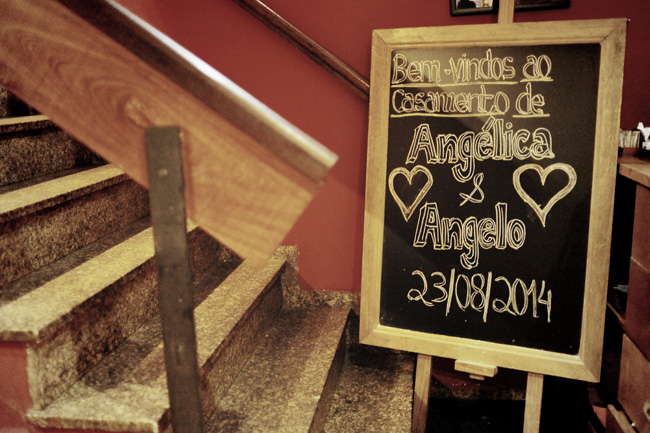 Bem-vindos ao
Casamento de
Angélica
&
Angelo
23/08/2014